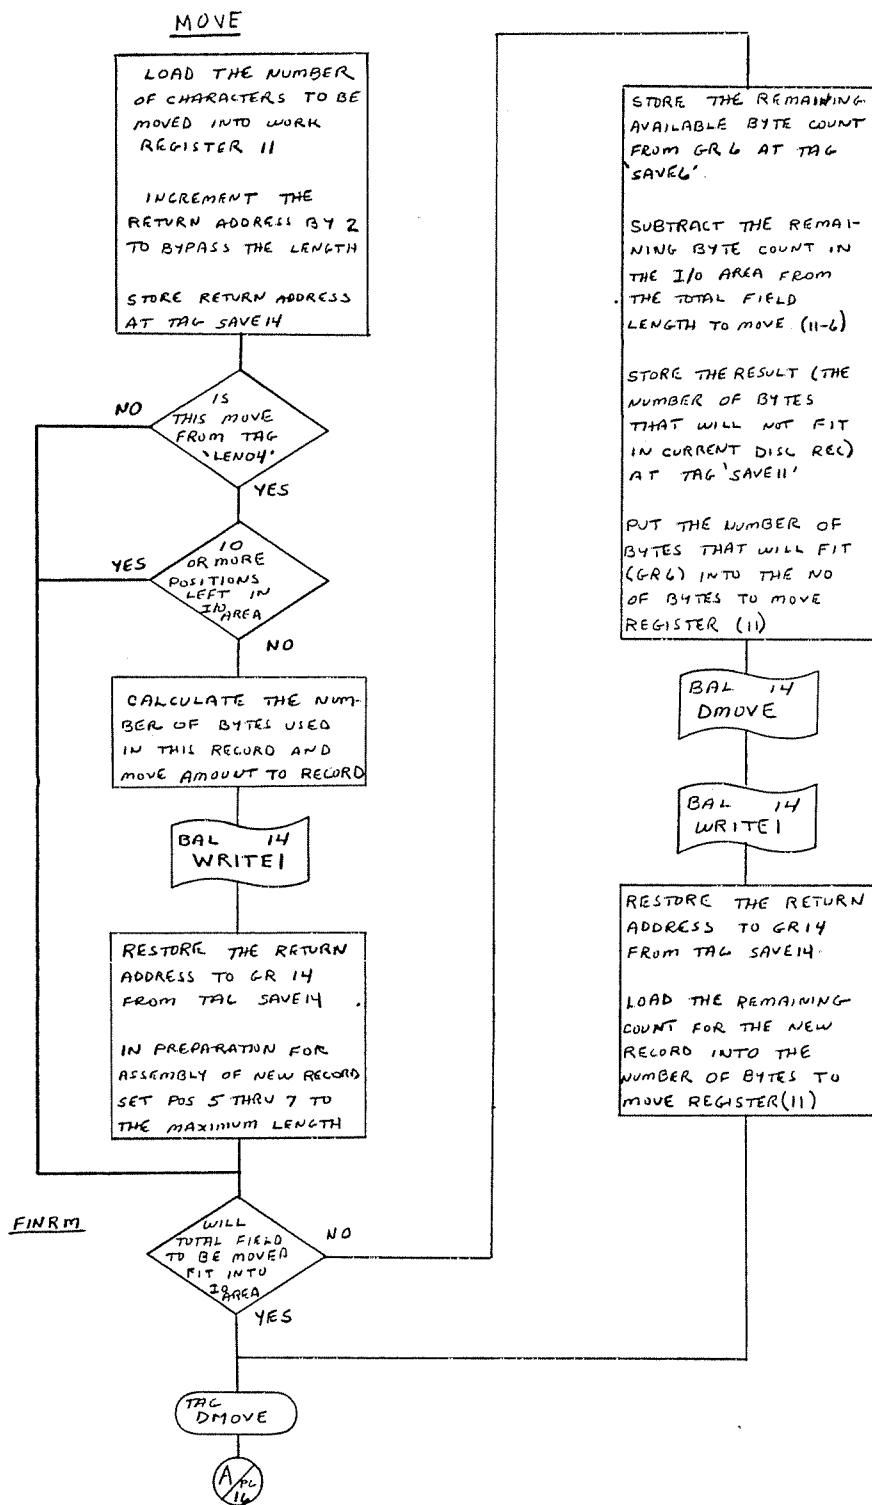 MOVE
LOAD THE NUMBER
OF CHARACTERS TO BE
MOVED INTO WORK
REGISTER 11
INCREMENT THE
RETURN ADDRESS BY 2
TO BYPASS THE LENGTH
STORE RETURN ADDRESS
AT TAG SAVE14
IS
THIS MOVE
FROM TAG
'LEN04'
NO
YES
10
OR MORE
POSITIONS
LEFT IN
I/O
AREA
YES
NO
CALCULATE THE NUM-
BER OF BYTES USED
IN THIS RECORD AND
MOVE AMOUNT TO RECORD
BAL 14
WRITE1
RESTORE THE RETURN
ADDRESS TO GR 14
FROM TAG SAVE14
IN PREPARATION FOR
ASSEMBLY OF NEW RECORD
SET POS 5 THRU 7 TO
THE MAXIMUM LENGTH
FINRM
WILL
TOTAL FIELD
TO BE MOVED
FIT INTO
IO AREA
NO
YES
TAG
DMOVE
A PG
16
STORE THE REMAINING
AVAILABLE BYTE COUNT
FROM GR6 AT TAG
'SAVE6'.
SUBTRACT THE REMAI-
NING BYTE COUNT IN
THE I/O AREA FROM
THE TOTAL FIELD
LENGTH TO MOVE (11-6)
STORE THE RESULT (THE
NUMBER OF BYTES
THAT WILL NOT FIT
IN CURRENT DISC REC)
AT TAG 'SAVE11'
PUT THE NUMBER OF
BYTES THAT WILL FIT
(GR6) INTO THE NO
OF BYTES TO MOVE
REGISTER (11)
BAL 14
DMOVE
BAL 14
WRITE1
RESTORE THE RETURN
ADDRESS TO GR14
FROM TAG SAVE14.
LOAD THE REMAINING
COUNT FOR THE NEW
RECORD INTO THE
NUMBER OF BYTES TO
MOVE REGISTER(11)